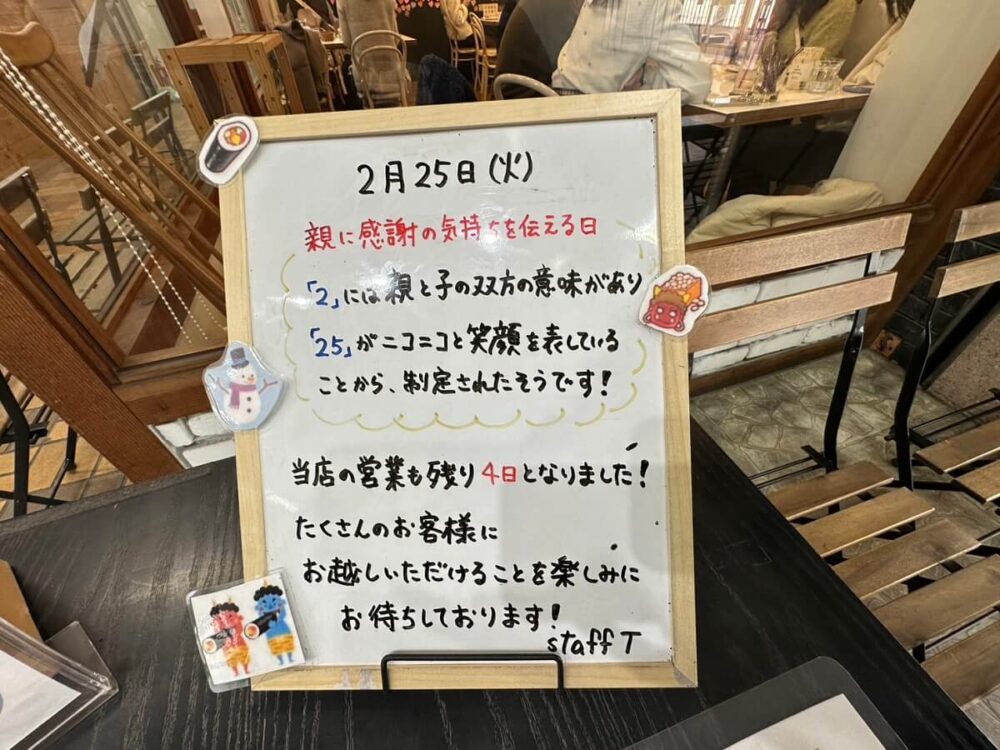 2月25日(火)
親に感謝の気持ちを伝える日
「2」には親と子の双方の意味があり
「25」がニコニコと笑顔を表している
ことから、制定されたそうです!
当店の営業も残り4日となりました!
たくさんのお客様に
お越しいただけることを楽しみに
お待ちしております!
staff T